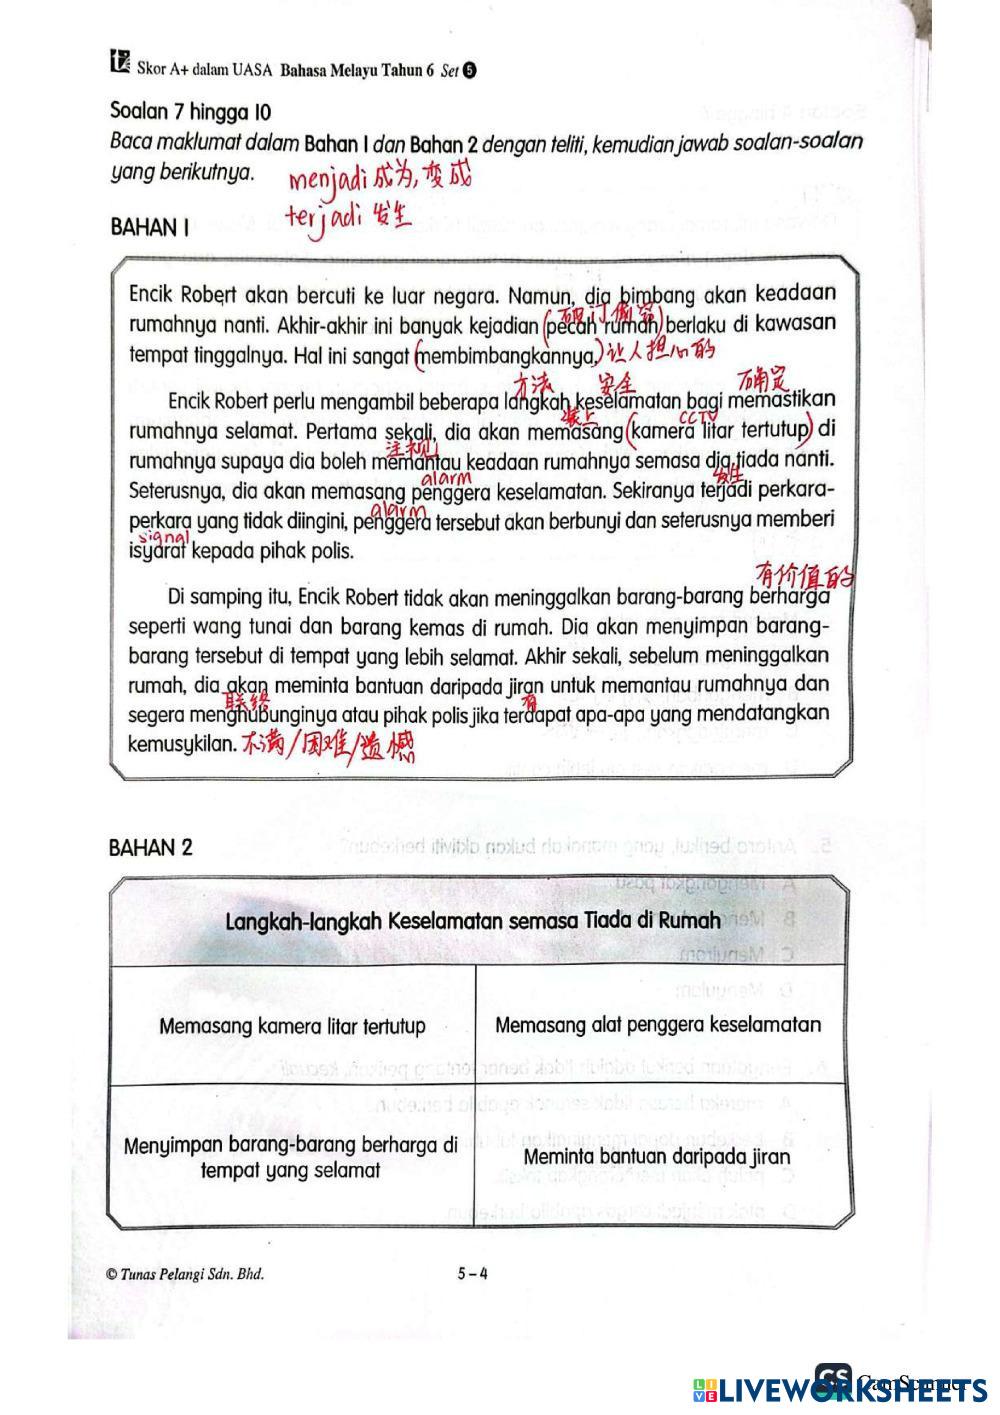 Skor A+ dalam UASA Bahasa Melayu Tahun 6 Set 5
Soalan 7 hingga 10
Baca maklumat dalam Bahan 1 dan Bahan 2 dengan teliti, kemudian jawab soalan-soalan
yang berikutnya.
menjadi 成为, 变成
terjadi 发生
BAHAN 1
Encik Robert akan bercuti ke luar negara. Namun, dia bimbang akan keadaan
rumahnya nanti. Akhir-akhir ini banyak kejadian (pecah rumah) berlaku di kawasan
tempat tinggalnya. Hal ini sangat (membimbangkannya.) 让人担心的
方法 安全 确定
Encik Robert perlu mengambil beberapa langkah keselamatan bagi memastikan
装上 CCTV
rumahnya selamat. Pertama sekali, dia akan memasang (kamera litar tertutup) di
注视
rumahnya supaya dia boleh memantau keadaan rumahnya semasa dia tiada nanti.
alarm 发生
Seterusnya, dia akan memasang penggera keselamatan. Sekiranya terjadi perkara-
alarm
perkara yang tidak diingini, penggera tersebut akan berbunyi dan seterusnya memberi
signal
isyarat kepada pihak polis.
有价值的
Di samping itu, Encik Robert tidak akan meninggalkan barang-barang berharga
seperti wang tunai dan barang kemas di rumah. Dia akan menyimpan barang-
barang tersebut di tempat yang lebih selamat. Akhir sekali, sebelum meninggalkan
rumah, dia akan meminta bantuan daripada jiran untuk memantau rumahnya dan
联络 有
segera menghubunginya atau pihak polis jika terdapat apa-apa yang mendatangkan
kemusykilan. 不满/困难/遗憾
BAHAN 2
Langkah-langkah Keselamatan semasa Tiada di Rumah
Memasang kamera litar tertutup
Memasang alat penggera keselamatan
Menyimpan barang-barang berharga di
tempat yang selamat
Meminta bantuan daripada jiran
© Tunas Pelangi Sdn. Bhd.
5 – 4
CS CamScanner
LIVEWORKSHEETS